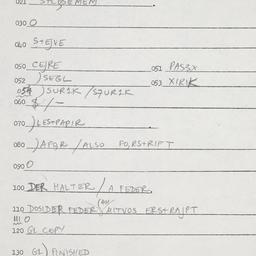 030 0
040 S+EJVE
050 CEJRE 051 PASBX
052 )SEGL 053 XIRIK
054 )SUR1K /S9UR1K
060 $/-
070 )LES+PAPIR
080 )AFQR /ALSO FO,RS+RIPT
090 0
100 DER HALTER / A FEDER
110 DOSIDER FEDER MITVOS ERS+RAJPT
111 0
120 GL COPY
130 GL) FINISHED